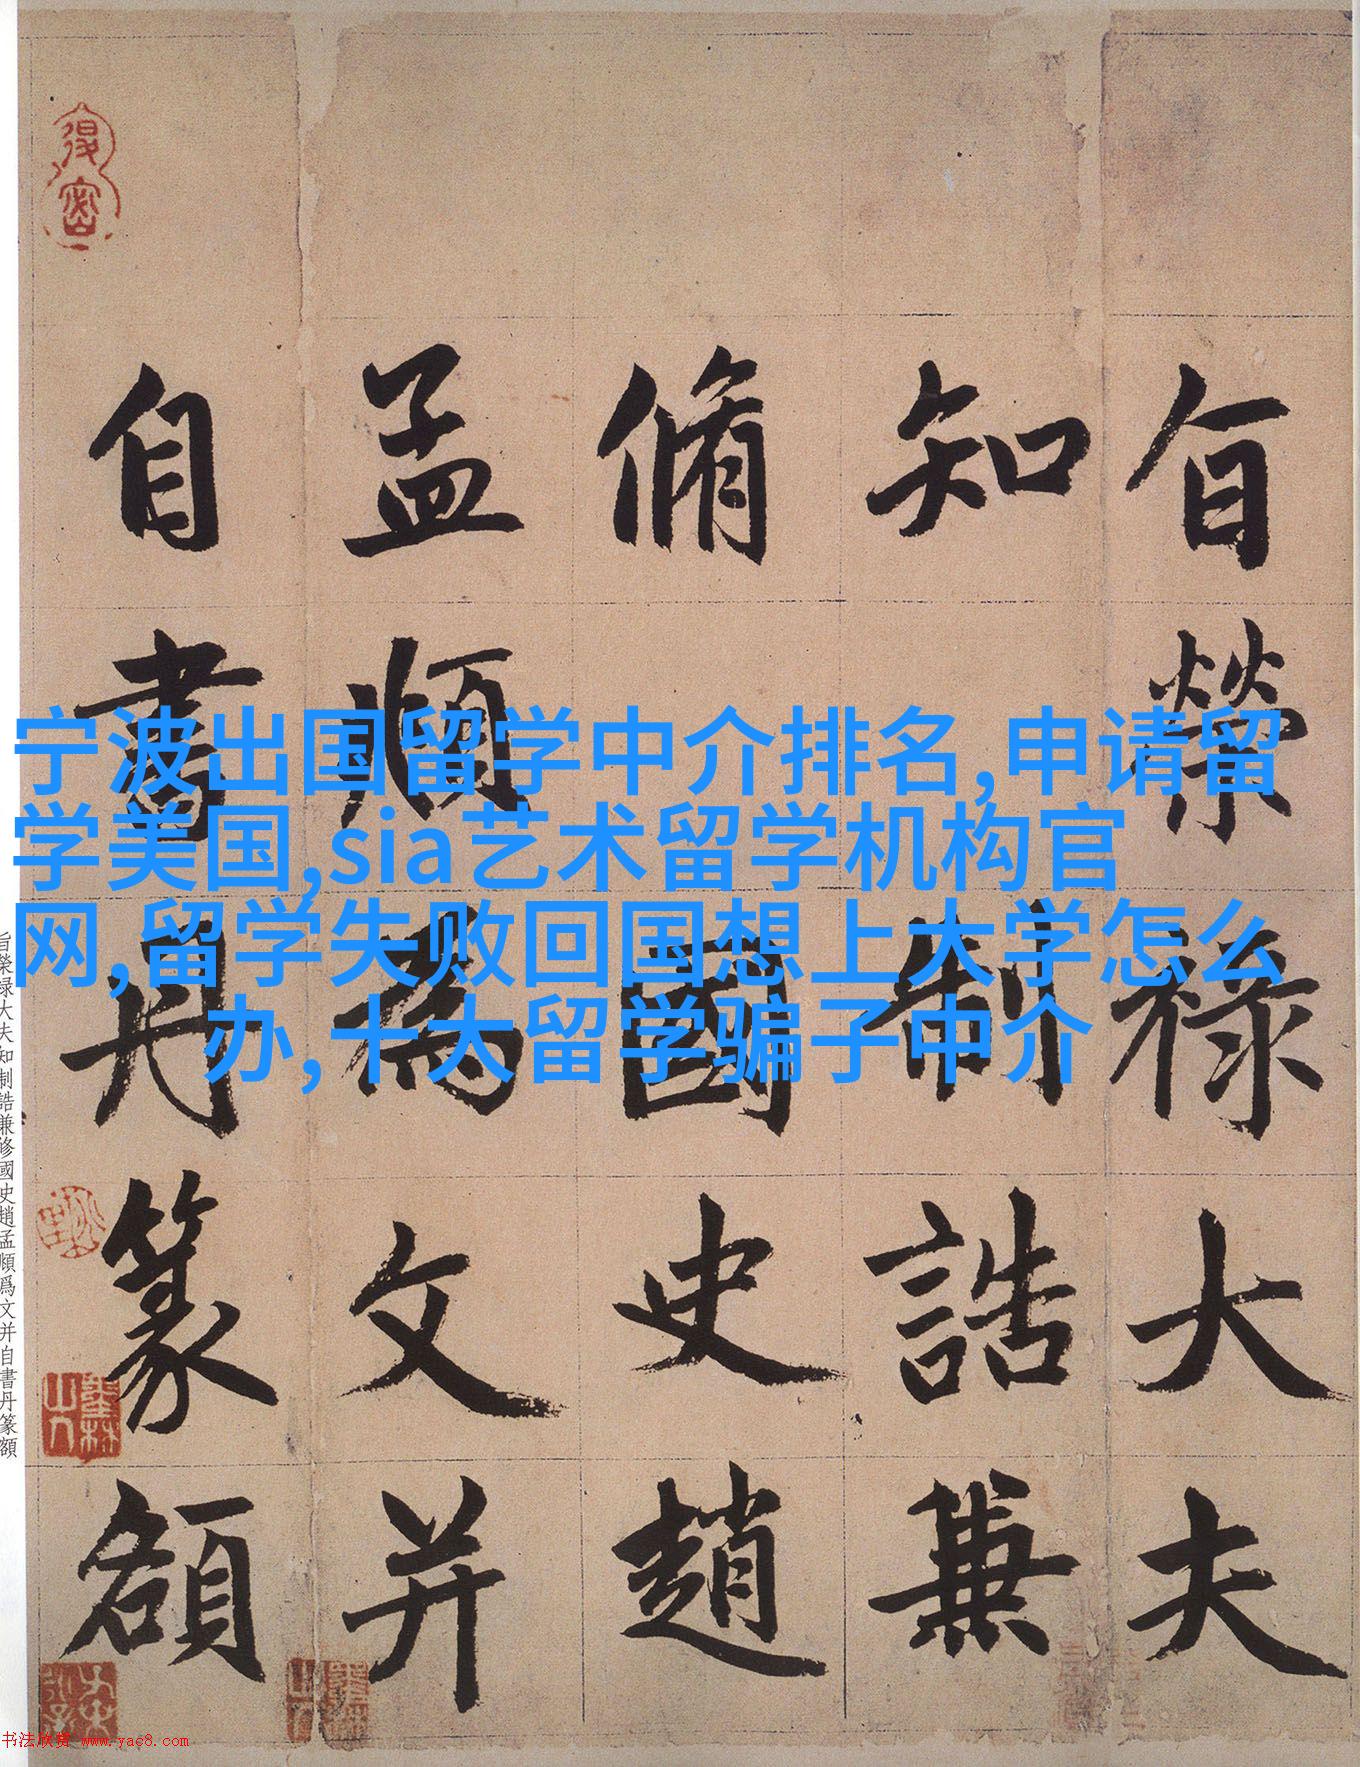 旨榮祿大夫
知制誥兼
脩國史趙
孟頫為文并
自書丹篆額
宁波出国留学中介排名,申请留
学美国,sia艺术留学机构官
网,留学失败回国想上大学怎么
办,十大留学骗子中介
旨榮禄大夫知制誥兼修國史趙孟頫爲文并自書丹篆額
书法欣赏 www.yac8.com